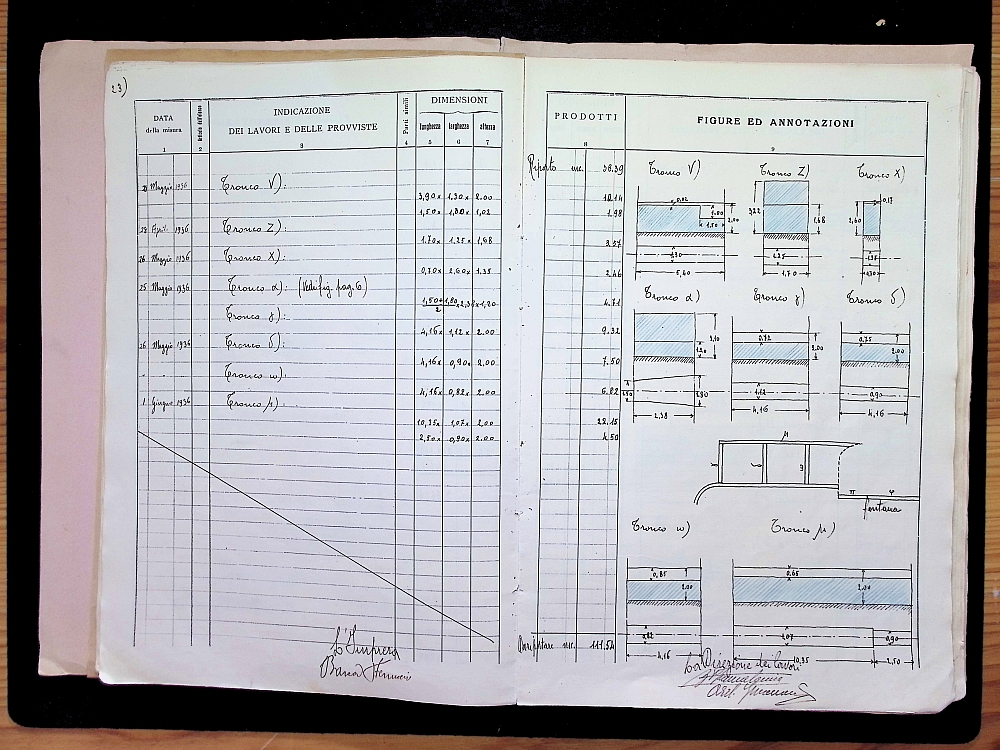 23)
DATA
della misura
INDICAZIONE
DEI LAVORI E DELLE PROVVISTE
Parti simili
DIMENSIONI
lunghezza larghezza altezza
1 2 3 4 5 6 7
Maggio 1936 Tronco V):
3,90 x 1,30 x 2.00
1,50 x 1,80 x 1,02
28 Aprile 1936 Tronco Z):
1.70 x 1.25 x 1,68
26 Maggio 1936 Tronco X):
0,70 x 2,60 x 1.35
25 Maggio 1936 Tronco α): (Vedi fig. pag. 6)
Tronco γ):
4,16 x 1,12 x 2.00
26 Maggio 1936 Tronco δ):
4,16 x 0,90 x 2.00
Tronco ω)
4,16 x 0,82 x 2.00
1 Giugno 1936 Tronco μ):
10,35 x 1,07 x 2.00
2,50 x 0,90 x 2.00
L'Impresa
PRODOTTI
FIGURE ED ANNOTAZIONI
8 9
Riporto mc. 38.39
10.14
1.98
3.57
2.46
4.71
9.32
7.50
6.82
22.15
4.50
Da riportare mc. 111.54
Tronco V) Tronco Z) Tronco X)
0,82 1.00 1,50 2,00 1,30 5,40
3,22 1,68 1,25 1,70
0,17 2,60 1,35
Tronco α) Tronco γ) Tronco δ)
2,38
0,72 2.00 1,12 4,16
0,75 2.00 0,90 4,16
μ
γ δ ω
π φ
fontana
Tronco ω) Tronco μ)
0,85 2.00 0,82 4,16
0,65 2,00 1,07 0,90 10,35 2,50
La Direzione dei lavori